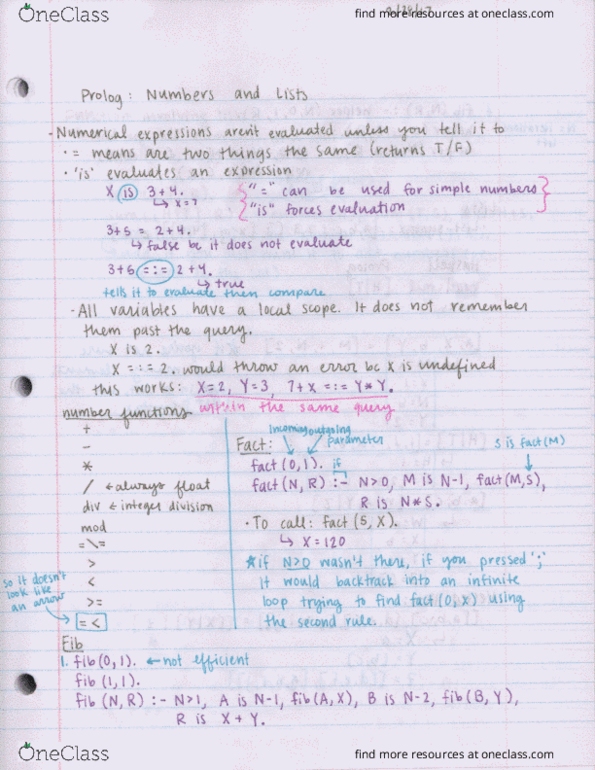 OneClass
find more resources at oneclass.com
Prolog: Numbers and Lists
- Numerical expressions aren't evaluated unless you tell it to
• = means are two things the same (returns T/F)
• 'is' evaluates an expression
X is 3+4.
↳ X=7
"=" can be used for simple numbers
"is" forces evaluation
3+5 = 2+4.
↳ false bc it does not evaluate
=:= 2+4.
↳ true
tells it to evaluate then compare
• All variables have a local scope. It does not remember
them past the query.
X is 2.
X =:= 2. would throw an error bc X is undefined
this works: X=2, Y=3, 7+X =:= Y*Y.
within the same query
number functions
+
-
*
/ ← always float
div ← integer division
mod
=\=
>
<
>=
=<
so it doesn't
look like
an arrow
Fact:
incoming
outgoing
parameter
fact(0,1). if
S is fact(M)
fact(N,R) :- N>0, M is N-1, fact(M,S),
R is N*S.
• To call: fact(5,X).
↳ X=120
* if N>0 wasn't there, if you pressed ';'
it would backtrack into an infinite
loop trying to find fact(0,X) using
the second rule.
Fib
1. fib(0,1). ← not efficient
fib(1,1).
fib(N,R) :- N>1, A is N-1, fib(A,X), B is N-2, fib(B,Y),
R is X+Y.
OneClass
find more resources at oneclass.com